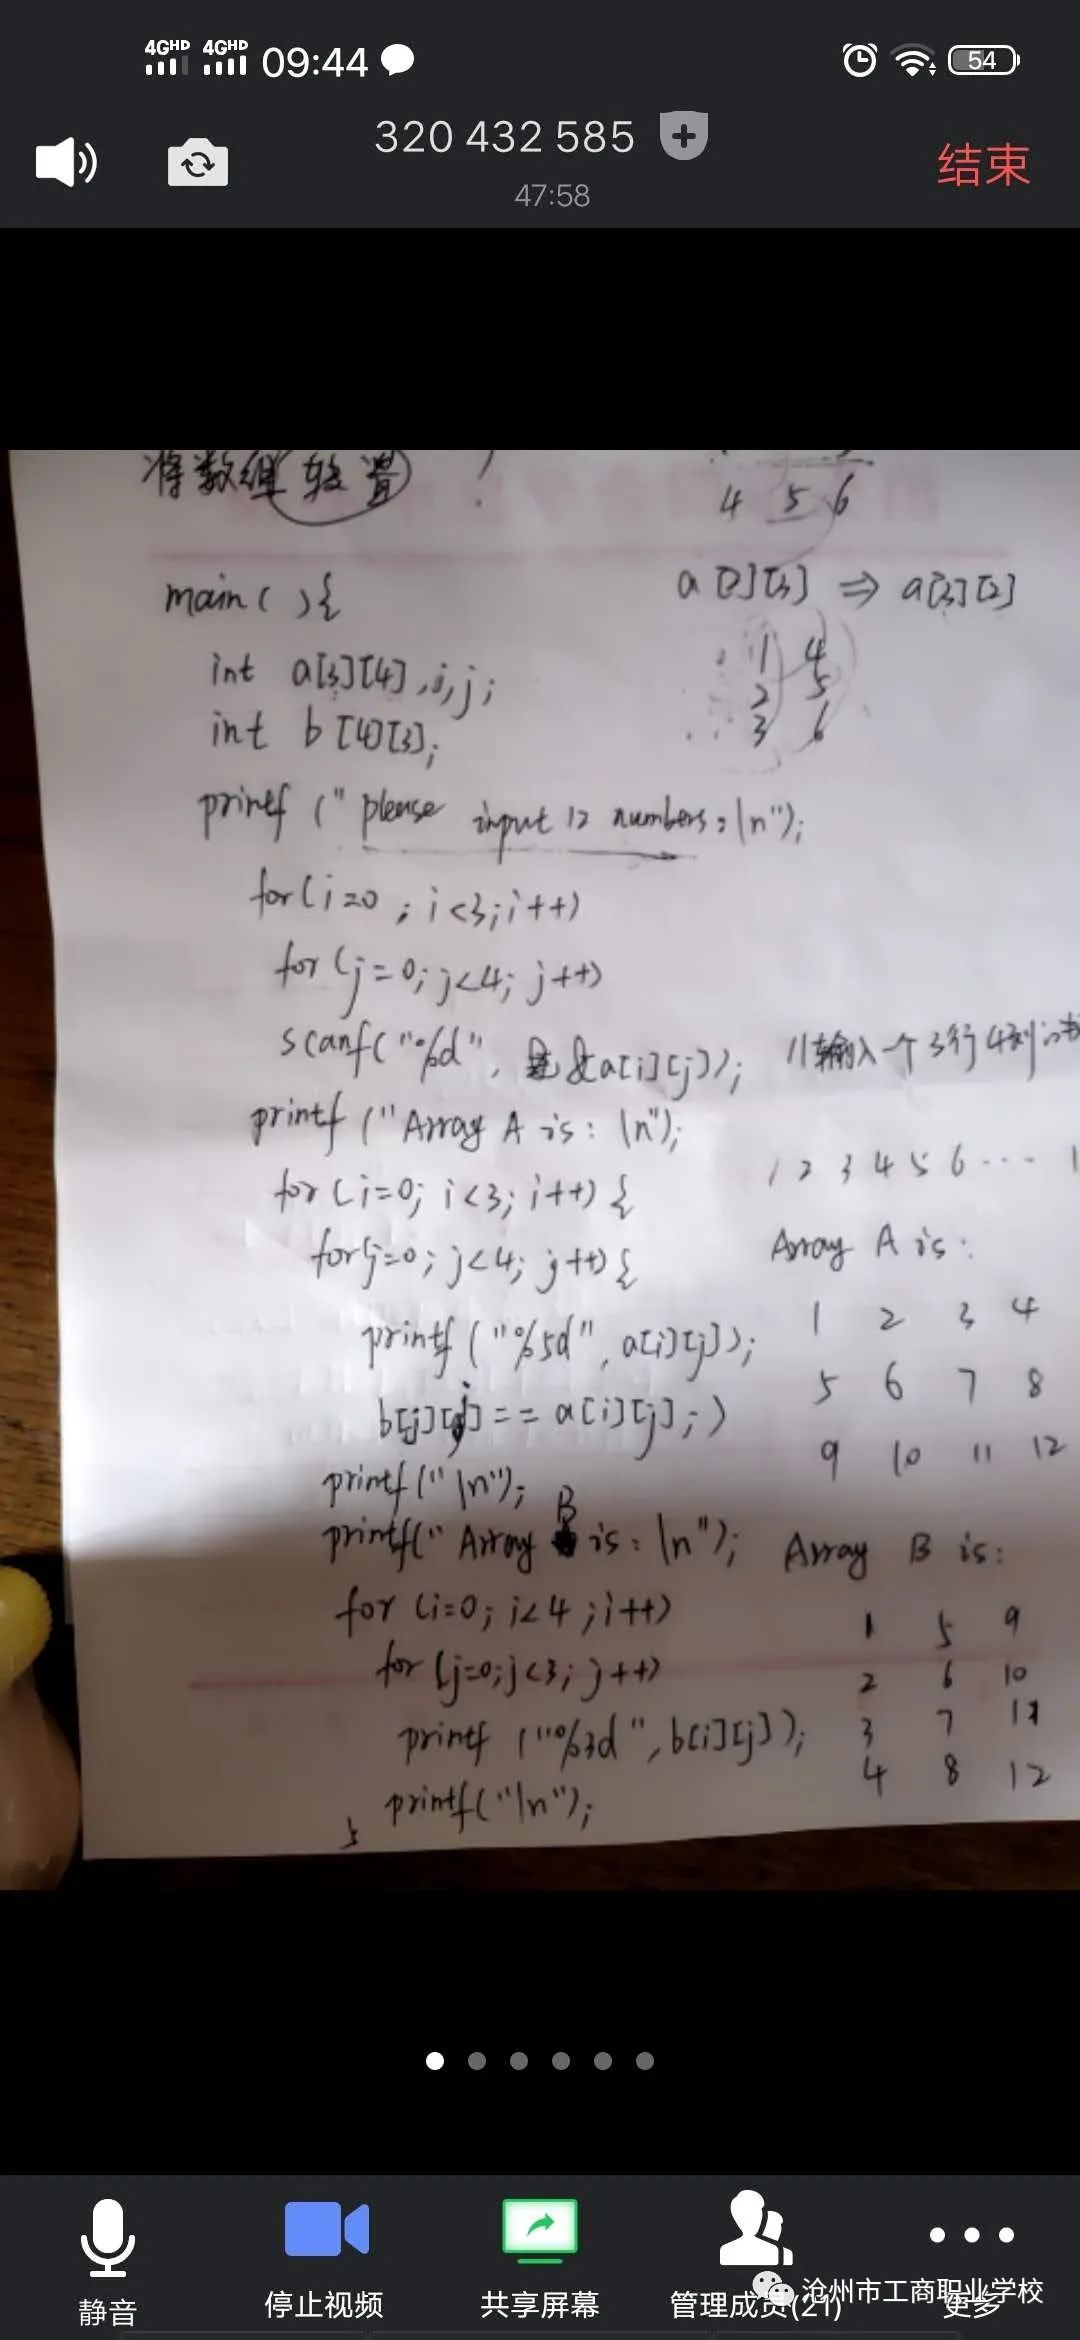 4GHD 4GHD 09:44 54
320 432 585
47:58
结束
将数组转置
4 5 6
main( ){
a[2][3] ⇒ a[3][2]
int a[3][4],i,j;
1 4
2 5
3 6
int b[4][3];
printf("please input 12 numbers:\n");
for(i=0;i<3;i++)
for(j=0;j<4;j++)
scanf("%d", &a[i][j]); //输入一个3行4列
printf("Array A is:\n");
1 2 3 4 5 6 ... 1
for(i=0;i<3;i++){
Array A is:
for(j=0;j<4;j++){
1 2 3 4
printf("%5d",a[i][j]);
5 6 7 8
b[j][i]==a[i][j];}
9 10 11 12
printf("\n");
printf("Array B is:\n"); Array B is:
for(i=0;i<4;i++)
1 5 9
for(j=0;j<3;j++)
2 6 10
printf("%3d",b[i][j]);
3 7 11
4 8 12
printf("\n");
静音
停止视频
共享屏幕
管理成员(21)
更多
沧州市工商职业学校